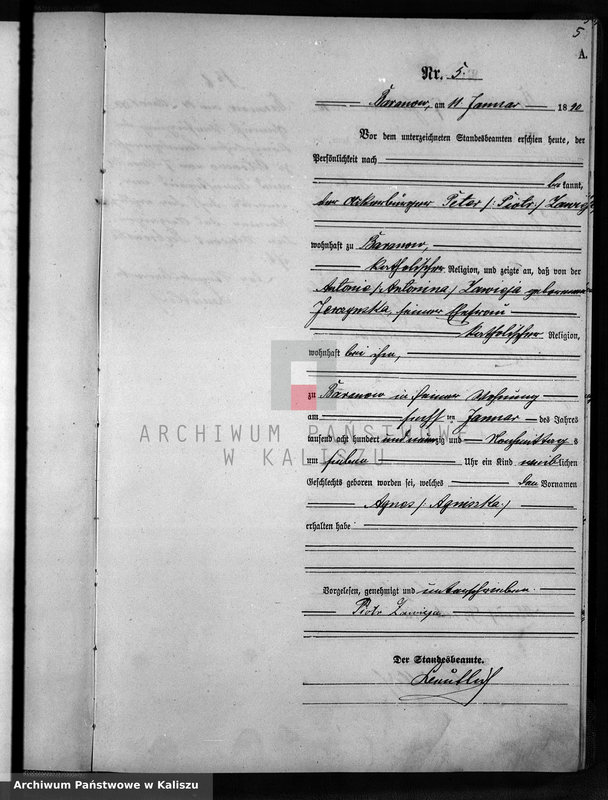 5
A.
Nr. 5.
Baranow, am 11 Januar 1890
Vor dem unterzeichneten Standesbeamten erschien heute, der
Persönlichkeit nach
be kannt,
der Ackerbürger Peter /: Piotr :/ Lawicja,
wohnhaft zu Baranow,
katholischer Religion, und zeigte an, daß von der
Antonie /: Antonina :/ Lawicja geborenen
seiner Ehefrau
katholischer Religion,
wohnhaft bei ihm,
zu Baranow in seiner Wohnung
am fünf ten Januar des Jahres
tausend acht hundert und neunzig und Nachmittags
um sieben Uhr ein Kind weiblichen
Geschlechts geboren worden sei, welches den Vornamen
Agnes /: Agnieszka :/
erhalten habe
Vorgelesen, genehmigt und unterschrieben.
Piotr Lawicja
Der Standesbeamte.
ARCHIWUM PAŃSTWOWE
W KALISZU
Archiwum Państwowe w Kaliszu